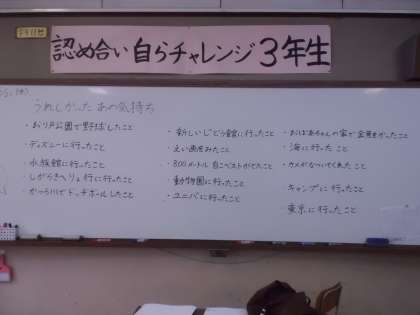 認め合い 自らチャレンジ 3年生
うれしかった あの気持ち
・おり戸公園で野球したこと
・ディズニーに行ったこと
水族館に行ったこと
しがらきへりょ行に行ったこと
かつら川でドッチボールしたこと
・新しいじどう館に行ったこと
・えい画をみたこと
・800メートル自こベストがでたこと
・動物園に行ったこと
・ユニバに行ったこと
・おばあちゃんの家で金魚をかったこと
・海に行ったこと
・カメがなついてくれたこと
キャンプに行ったこと
東京に行ったこと